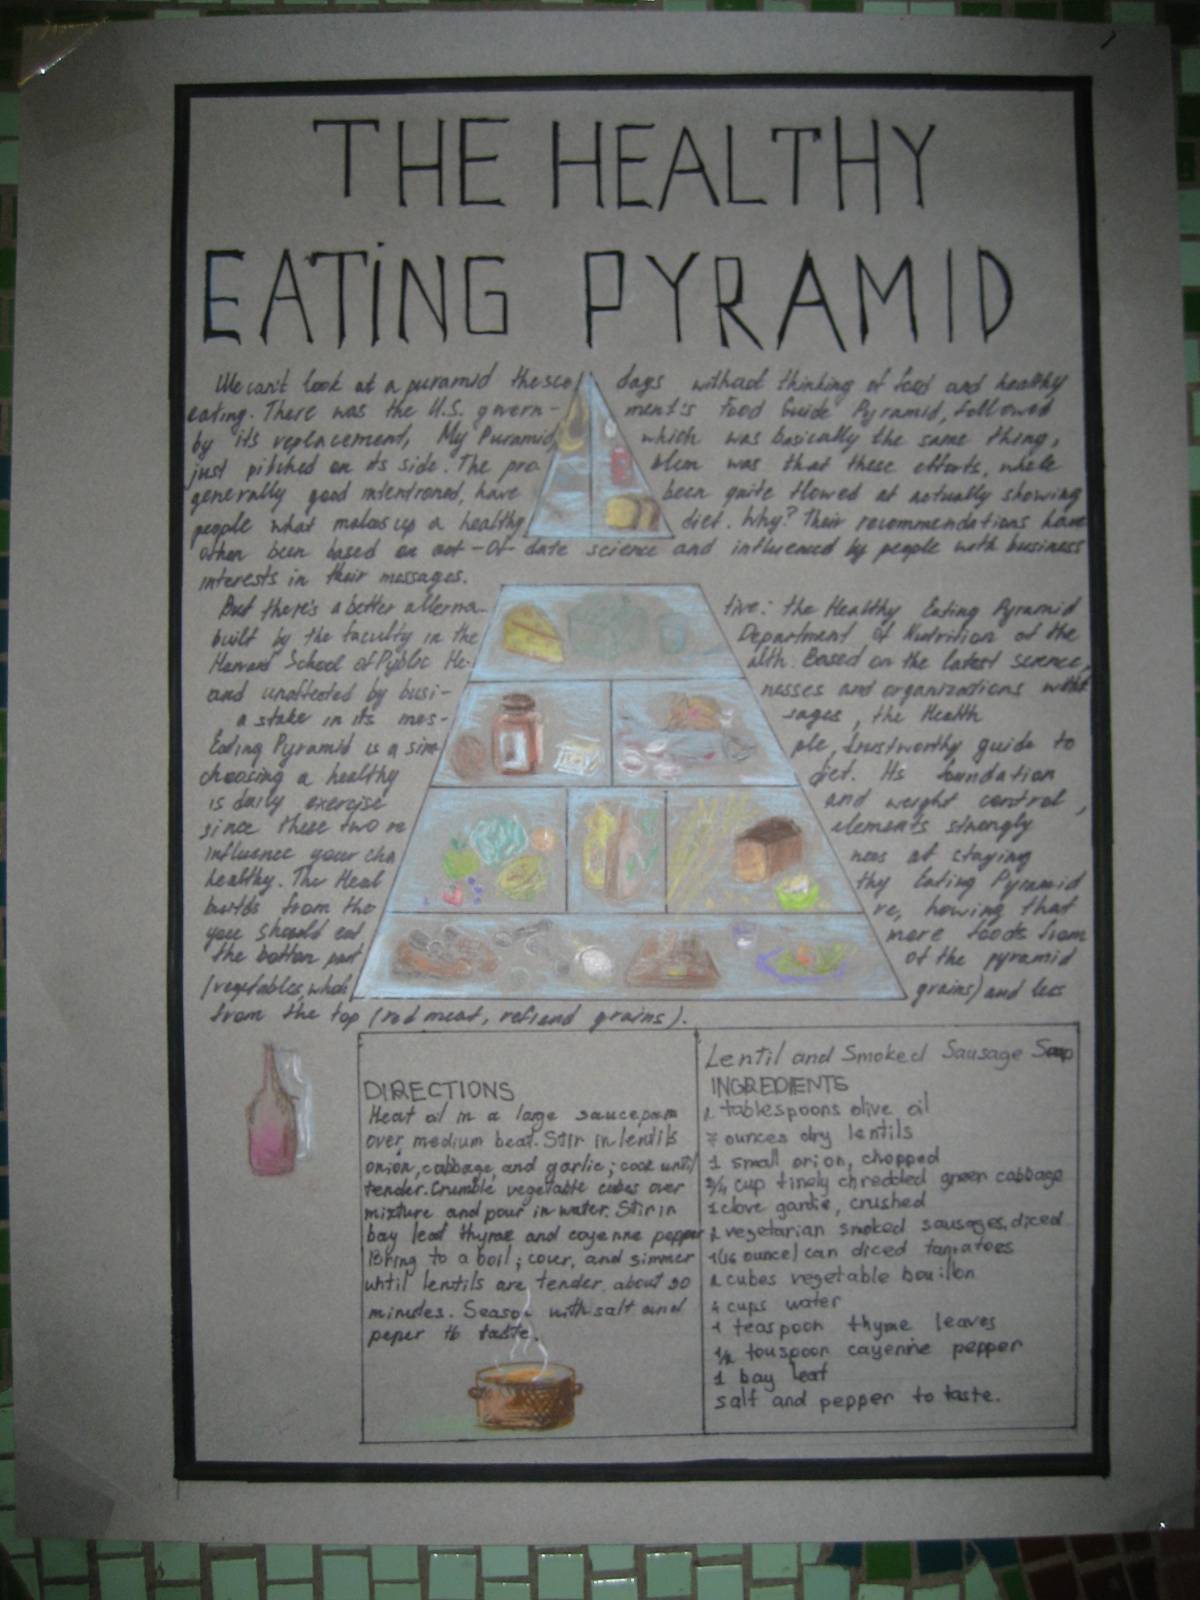 THE HEALTHY
EATING PYRAMID
We can't look at a puramid these days without thinking of food and healthy
eating. There was the U.S. govern- ment's Food Guide Pyramid, followed
by its replacement, My Puramid, which was basically the same thing,
just pitched on its side. The pro blem was that these efforts, while
generally good intentioned, have been quite flowed at actually showing
people what makes up a healthy diet. Why? Their recommendations have
often been based on out-of-date science and influenced by people with business
interests in their messages.
But there's a better alterna- tive: the Healthy Eating Pyramid
built by the faculty in the Department of Nutrition of the
Harvard School of Public He- alth. Based on the latest science,
and unaffected by busi- nesses and organizations with
a stake in its mes- sages, the Health
Eating Pyramid is a sim ple, trustworthy guide to
choosing a healthy diet. Its foundation
is daily exercise and weight control,
since these two re elements strongly
influence your cha nces of staying
healthy. The Heal thy Eating Pyramid
builds from the re, howing that
you should eat more foods from
the bottom part of the pyramid
(vegetables, whole grains) and less
from the top (red meat, refiend grains).
DIRECTIONS
Heat oil in a large saucepam
over medium heat. Stir in lentils
onion, cabbage, and garlic; cook until
tender. Crumble vegetable cubes over
mixture and pour in water. Stir in
bay leaf thyme and cayenne pepper
Bring to a boil; cover, and simmer
until lentils are tender, about 30
minutes. Season with salt and
peper to taste.
Lentil and Smoked Sausage Soup
INGREDIENTS
tablespoons olive oil
7 ounces dry lentils
1 small onion, chopped
3/4 cup finely chredded green cabbage
1 clove garlic, crushed
2 vegetarian smoked sausages, diced
1(16 ounce) can diced tamatoes
2 cubes vegetable bouillon
4 cups water
1 teaspoon thyme leaves
1/2 teuspoon cayenne pepper
1 bay leaf
salt and pepper to taste.